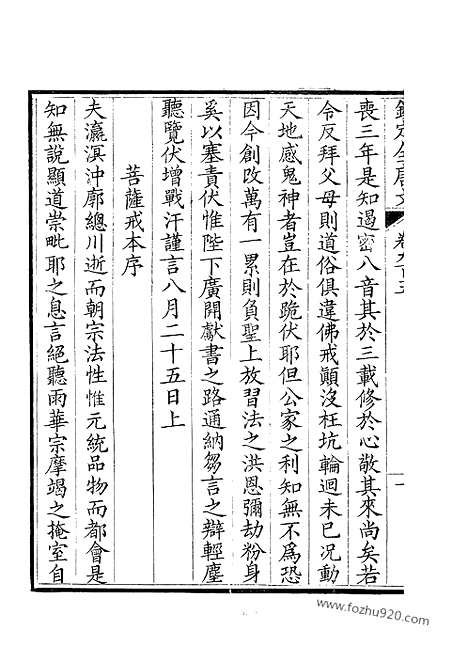 喪三年是知遏密八音其於三載修於心敬其來尚矣若
令反拜父母則道俗俱違佛戒顛沒枉坑輪迴未已況動
天地感鬼神者豈在於跪伏耶但公家之利知無不為恐
因今創改萬有一累則負聖上放習法之洪恩彌劫粉身
奚以塞責伏惟陛下廣開獻書之路通納芻言之辯輕塵
聽覽伏增戰汗謹言八月二十五日上
菩薩戒本序
夫瀛溟沖廓總川逝而朝宗法性惟元統品物而都會是
知無說顯道崇毗耶之息言絕聽雨華宗摩竭之掩室自
www.fozhu920.com